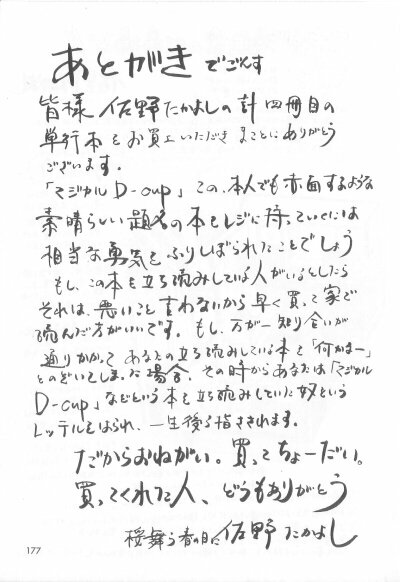 あとがき でごんす
皆様 佐野たかよしの計四冊目の
単行本をお買上いただきまことにありがとう
ございます。
「マジカルD-cup」この、本人でも赤面するような
素晴らしい題名の本をレジに持っていくには
相当な勇気をふりしぼられたことでしょう
もし、この本を立ち読みしている人がいるとしたら
それは、悪いこと言わないから早く買って家で
読んだ方がいいです。もし、万が一知り合いが
通りかかってあなたの立ち読みしている本を「何かなー」
とのぞいてしまった場合、その時からあなたは「マジカル
D-cup」などという本を立ち読みしていた奴という
レッテルをはられ、一生後ろ指さされます。
だからおねがい。買ってちょーだい。
買ってくれた人、どうもありがとう
桜舞う春の日に 佐野たかよし
177